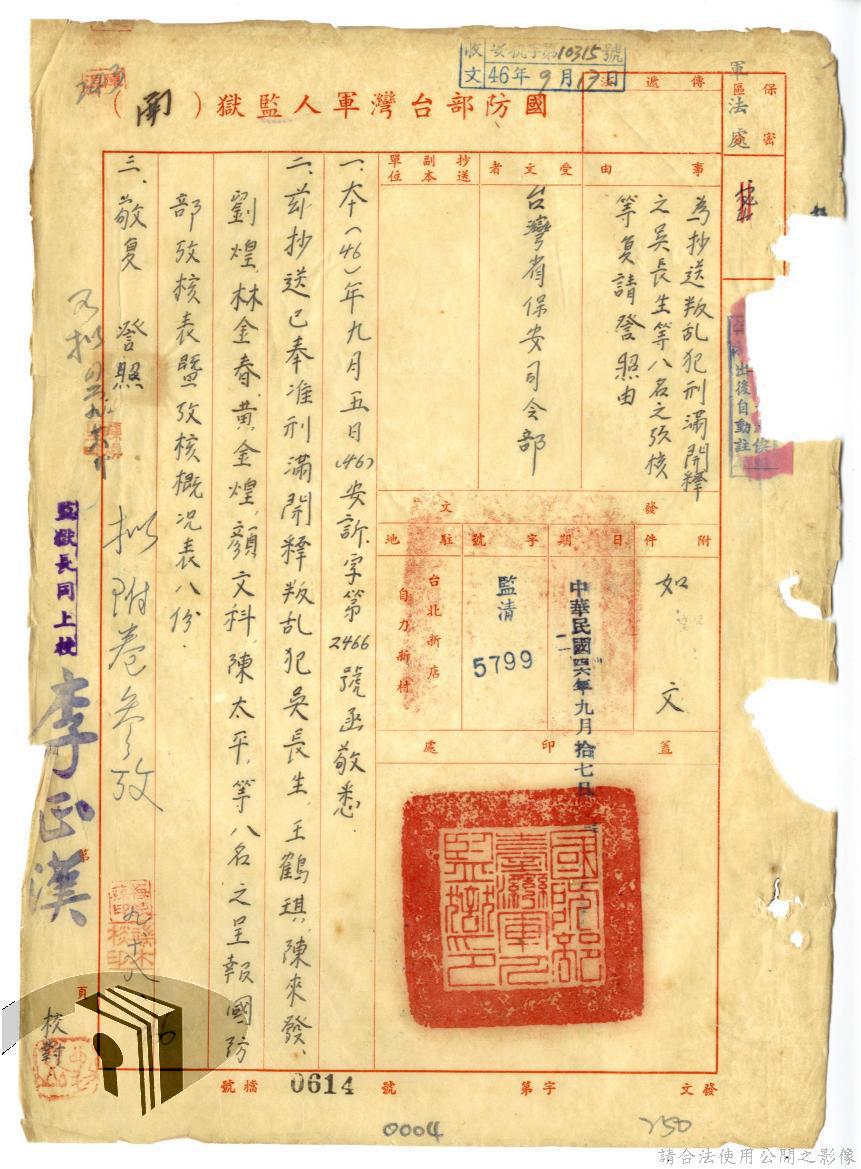 收文
安執字第10315號
46年9月17日
國防部台灣軍人監獄(開)
傳遞法
保密區分
軍法處
事由
為抄送叛乱犯刑滿開釋
之吳長生等八名之攷核
等复請詧照由
受文者
台灣省保安司令部
抄送副本單位
發文
附件
如文
日期
中華民國四六年九月拾七日
字號
監清
5799
駐地
台北新店
自力新村
蓋印處
國防部臺灣軍人監獄印
一、本(46)年九月五日(46)安訴字第2466號函敬悉.
二、茲抄送已奉准刑滿開釋叛乱犯吳長生、王鶴琪、陳來發、
劉煌、林金春、黃金煌、顏文科、陳太平、等八名之呈報國防
部攷核表暨攷核概况表八份.
三、敬复 詧照
拟附卷參攷
監獄長同上校
李正漢
第
頁
校對
出後自動註
發文
字第
號
檔號
0614
0004
250
請合法使用公開之影像